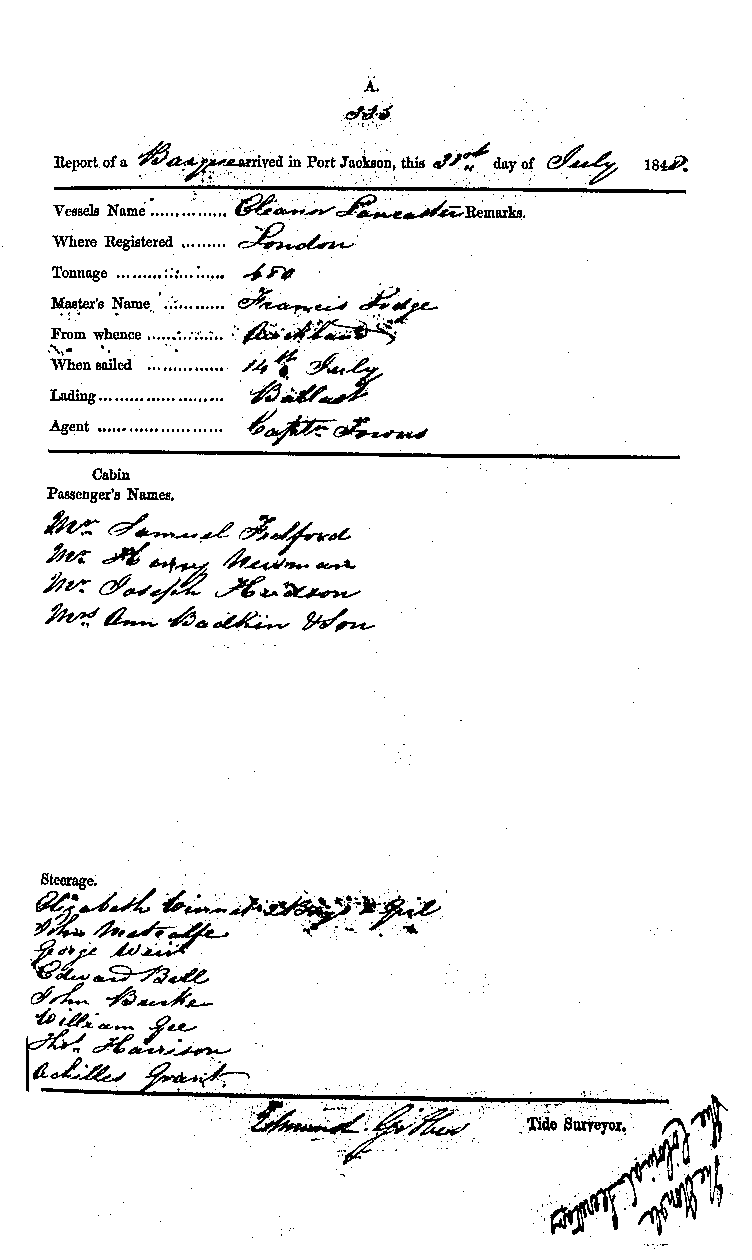 A.
Report of a Barque arrived in Port Jackson, this 31st day of July 1848.
Vessels Name .............. Eleanor Lancaster Remarks.
Where Registered ......... London
Tonnage ...................... 480
Master's Name ............ Francis Lodge
From whence .............. Auckland
When sailed .............. 14th July
Lading....................... Ballast
Agent ....................... Captn Towns
Cabin
Passenger's Names.
Mr Samuel Fulford
Mr Harry Newman
Mr Joseph Hudson
Mrs Ann Badkin & Son
Steerage.
Elizabeth Boys & Girl
John Metcalfe
George Weir
Edward Bell
John Burke
William Gee
Thos Harrison
Achilles Grant
Edmund Tide Surveyor.
The Honble
The Colonial Secretary